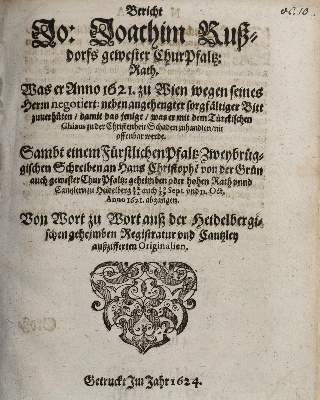 Bericht
Jo: Joachim Ruß-
dorfs gewester ChurPfaltz:
Rath,
Was er Anno 1621. zu Wien wegen seines
Herrn negotiert: neben angehengter sorgfältiger Bitt
zuverhüten / damit das jenige / was er mit dem Türckischen
Chiaus zu der Christenheit Schaden zuhandlen / nit
offenbar werde.
Sambt einem Fürstlichen Pfaltz Zweybrüg-
gischen Schreiben an Hans Christoph: von der Grün
auch gewester Chur Pfaltz: geheimben oder hohen Rath vnnd
Cantzlern zu Heidelberg auch Sept. vnd 11. Oct.
Anno 1621. abgangen.
Von Wort zu Wort auß der Heidelbergi-
schen geheimben Registratur vnd Cantzley
außzifferten Originalien.
Getruckt Im Jahr 1624.